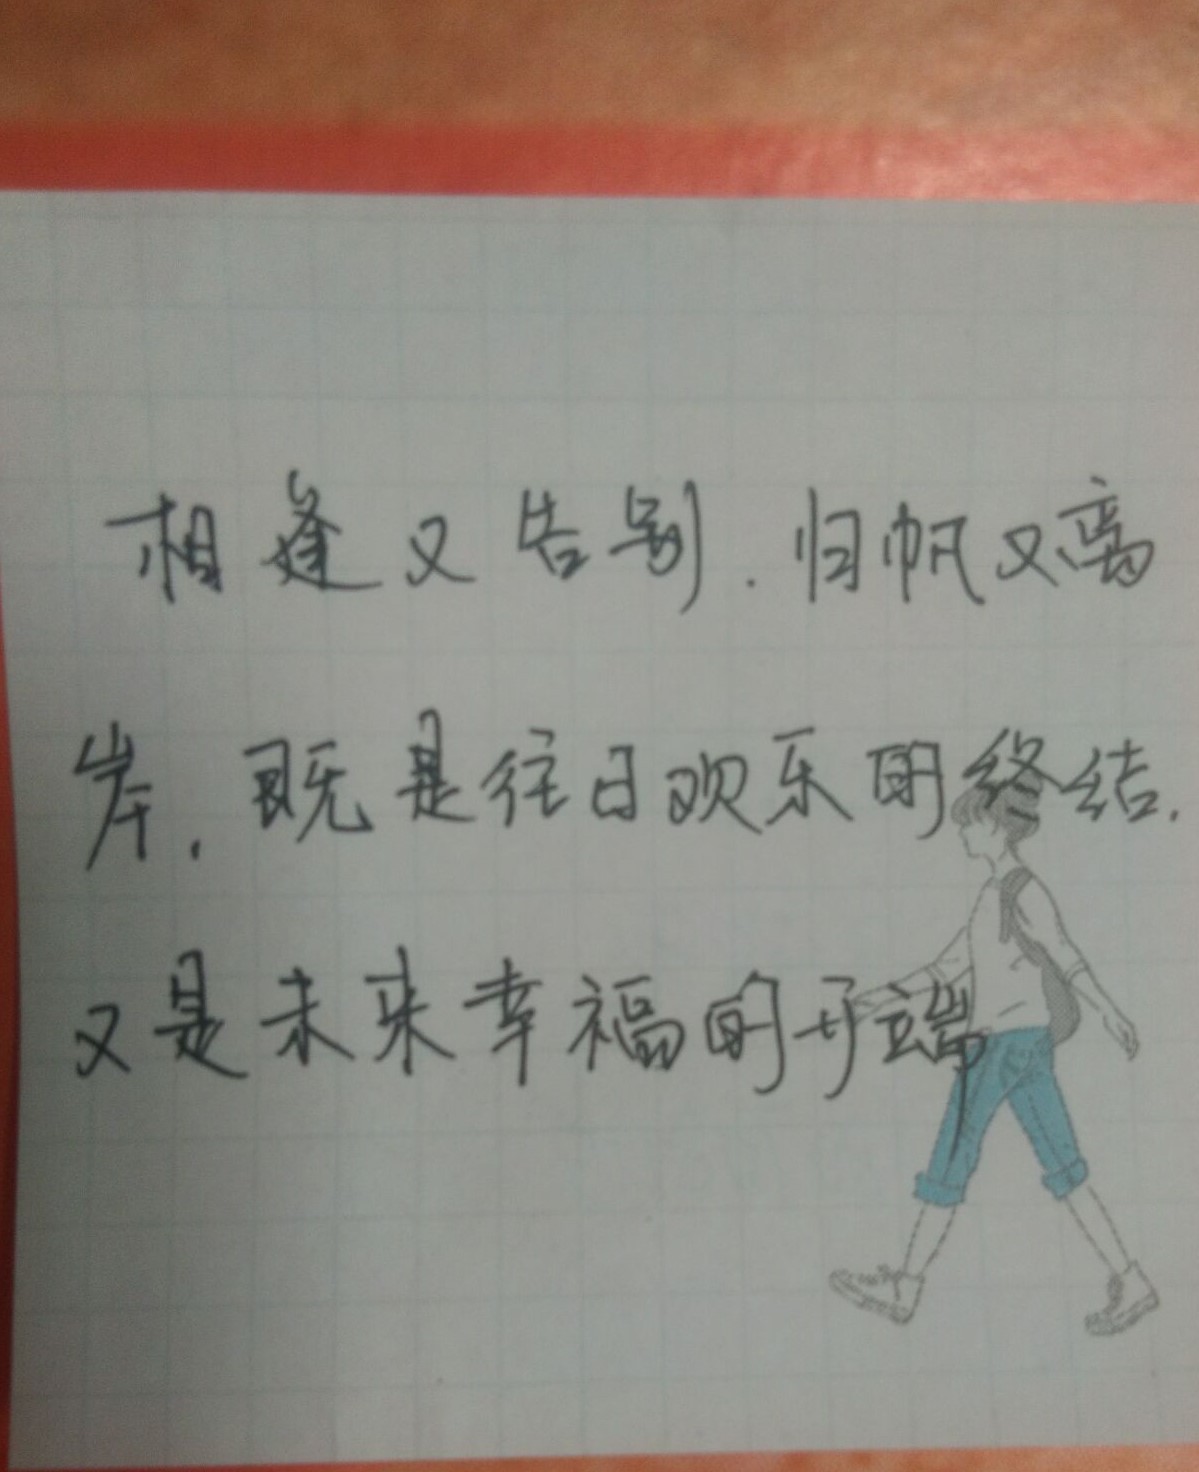 相逢又告别.归帆又离
岸,既是往日欢乐的终结.
又是未来幸福的开端